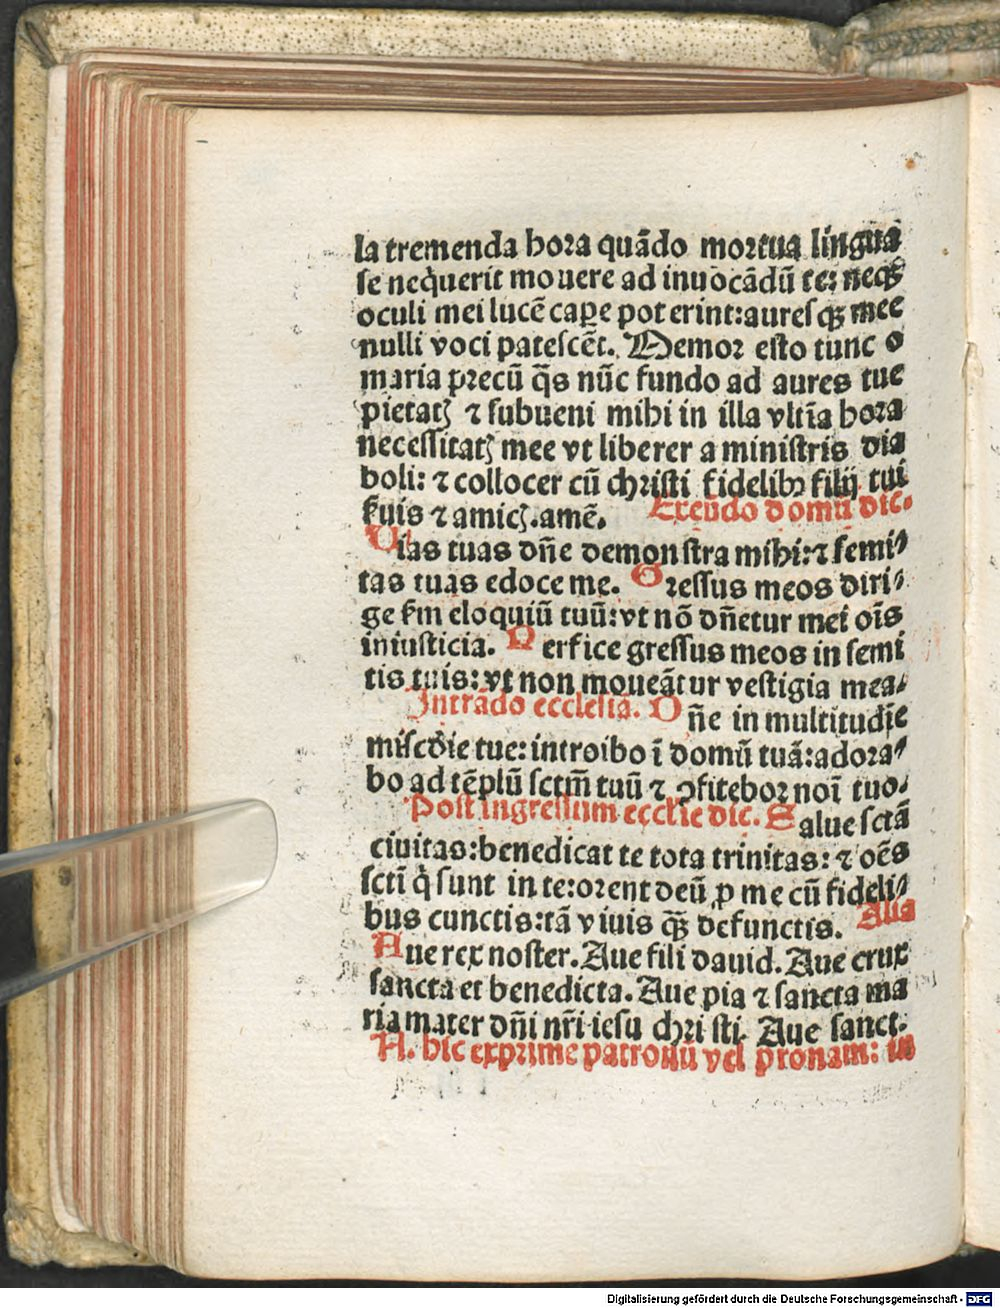 la tremenda hora quādo mortua lingua
se neq̇uerit mouere ad inuocādū te: neqꝫ
oculi mei lucē caꝑe poterint: auresqꝫ mee
nulli voci patescēt. Memor esto tunc o
maria precū q̄s nūc fundo ad aures tue
pietatꝭ ⁊ subueni mihi in illa vltīa hora
necessitatꝭ mee vt liberer a ministris dia
boli: ⁊ collocer cū christi fidelibꝰ filij tui
suis ⁊ amicꝭ. amē. Exeūdo domū dic.
Vias tuas dn̄e demonstra mihi: ⁊ semi⸗
tas tuas edoce me. Gressus meos diri⸗
ge ẜm eloquiū tuū: vt nō dn̄etur mei oīs
iniusticia. Perfice gressus meos in semi
tis tuis: vt non moueātur vestigia mea.
Intrādo ecclesiā. Dn̄e in multitudīe
miscd̄ie tue: introibo ī domū tuā: adora⸗
bo ad tēplū sctm̄ tuū ⁊ ꝯfitebor noī tuo.
Post ingressum ecclie dic. Salue sctā
ciuitas: benedicat te tota trinitas: ⁊ oēs
sctī q̇ sunt in te: orent deū ꝓ me cū fideli⸗
bus cunctis: tā viuis qꝫ̄ defunctis. Alia
Aue rex noster. Aue fili dauid. Aue crux
sancta et benedicta. Aue pia ⁊ sancta ma
ria mater dn̄i nr̄i iesu christi. Aue sanct.
N. hic exprime patronū vel pronam: in
Digitalisierung gefördert durch die Deutsche Forschungsgemeinschaft - DFG